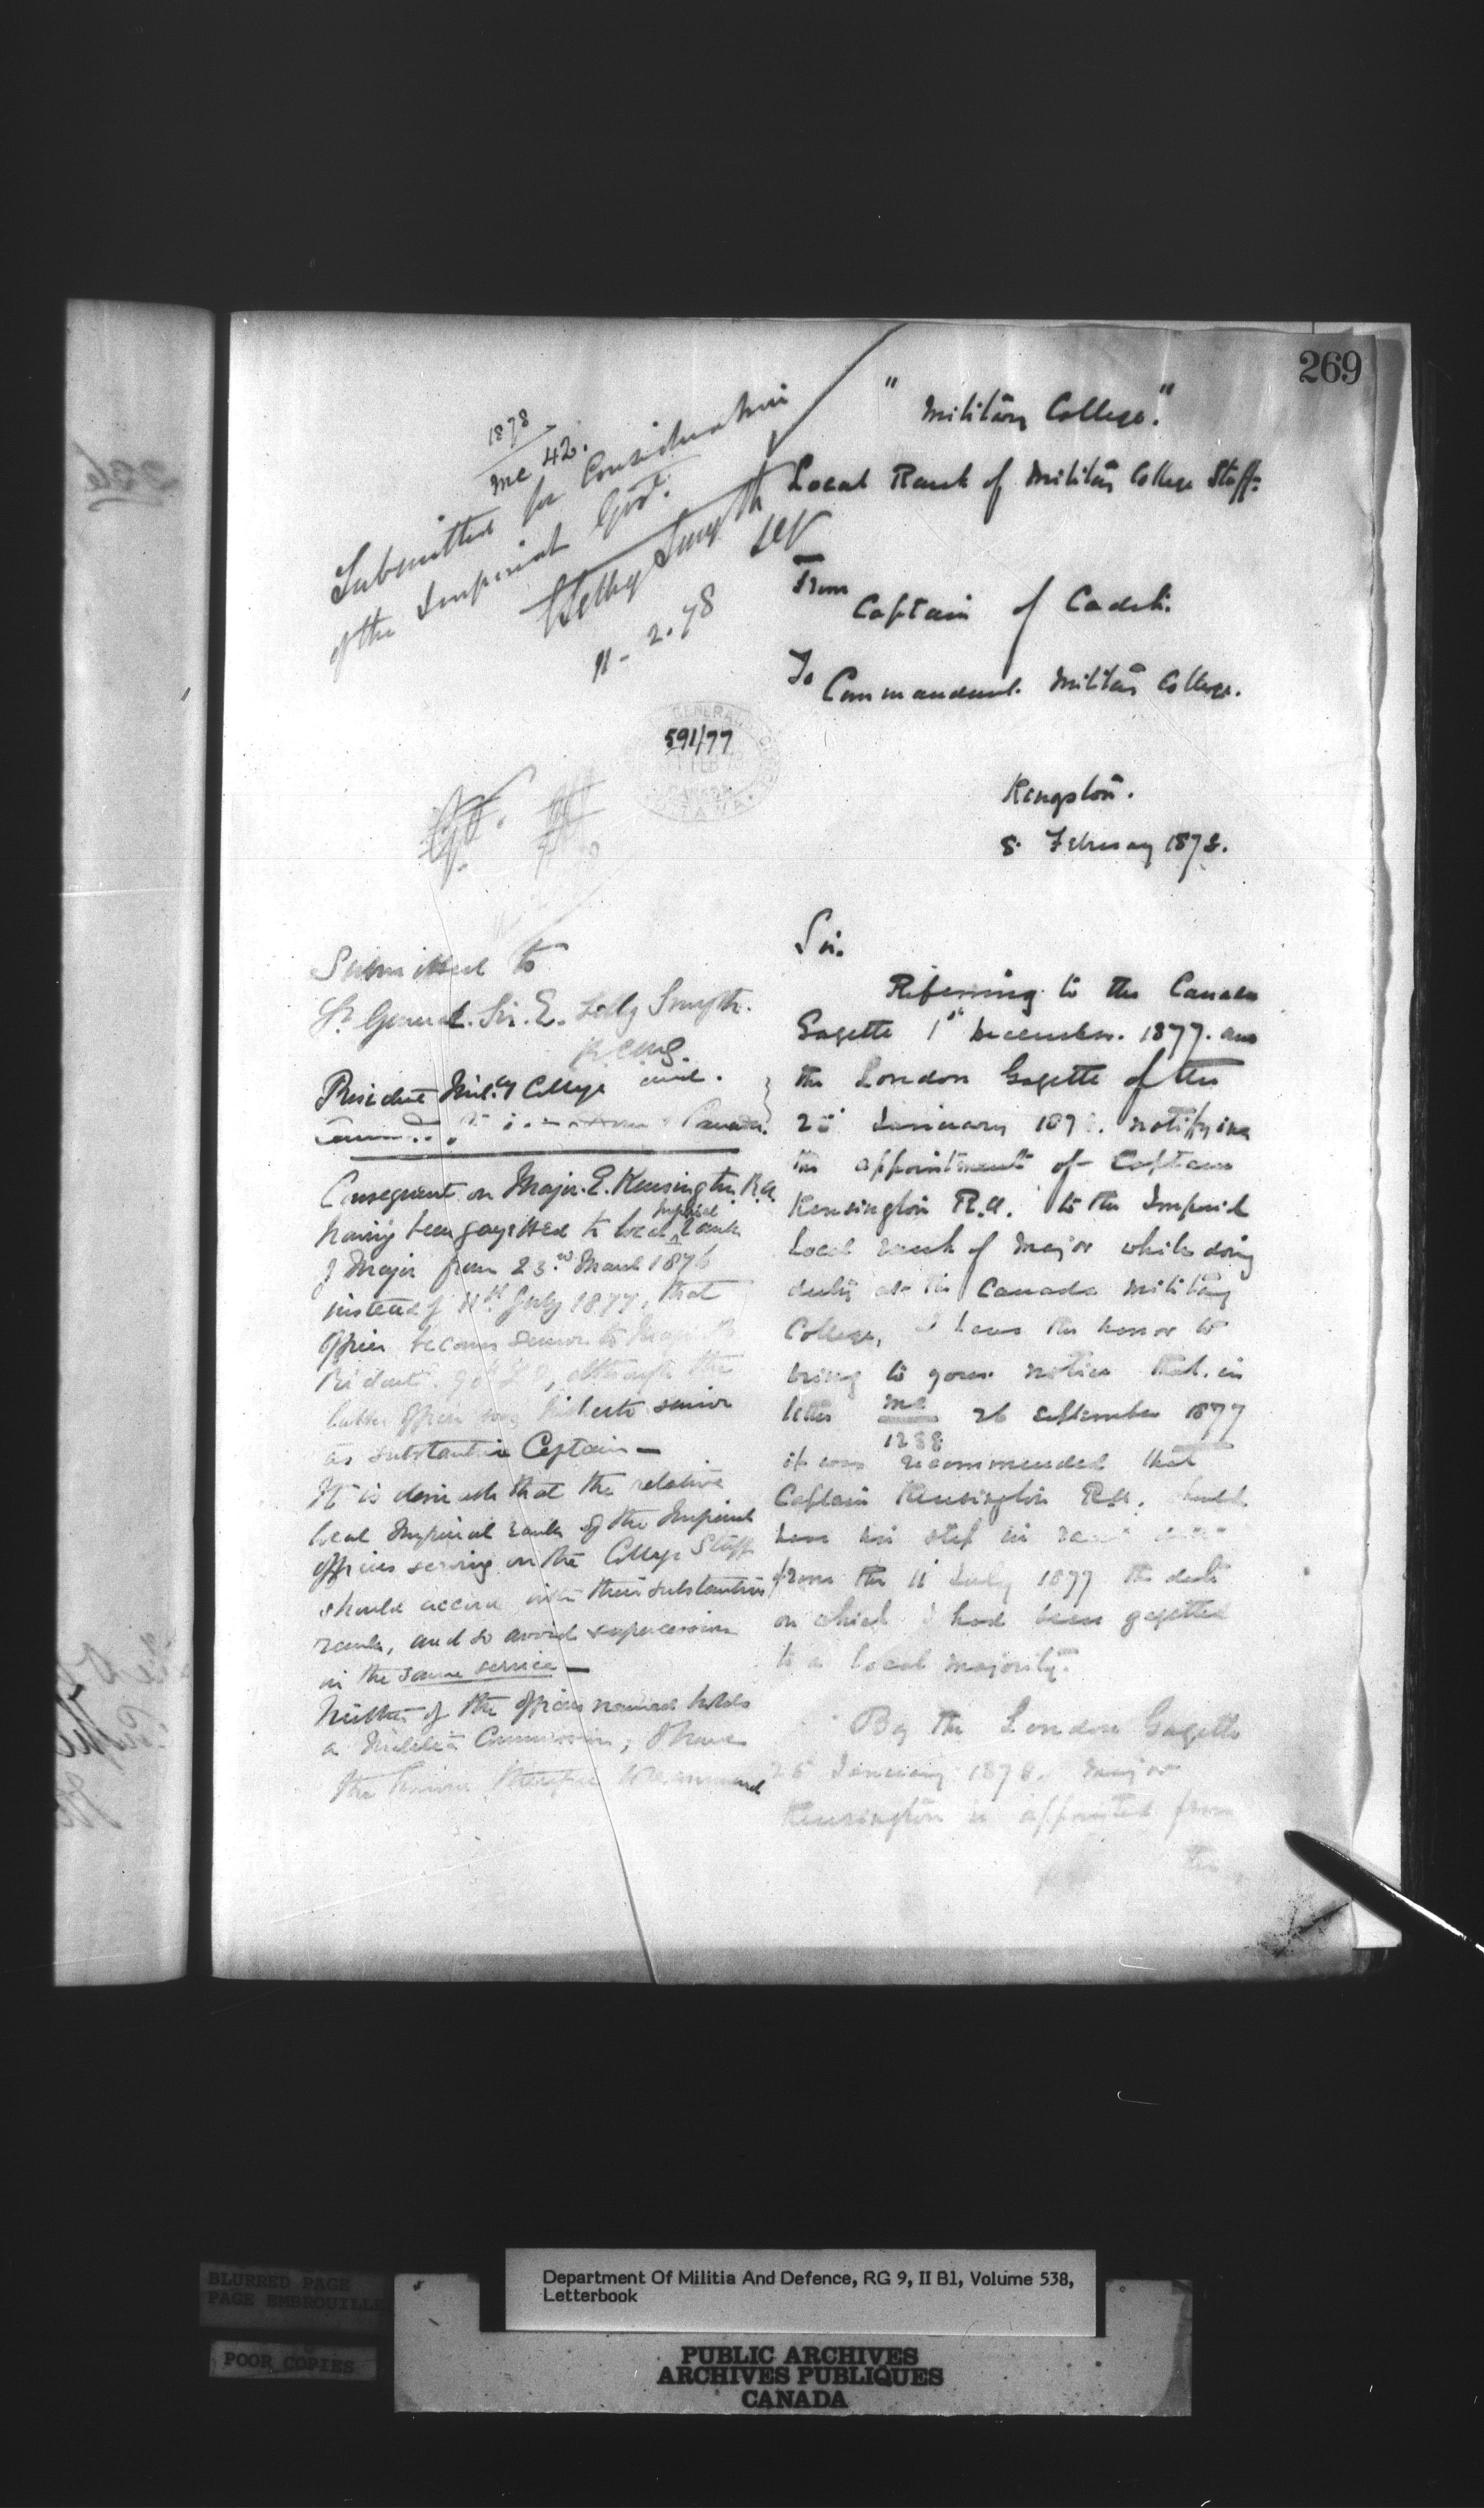 269
1878
mc 42.
Submitted for Consideration
of the Imperial Govt.
E Selby Smyth
11-2.78
591/77
"Military College."
Local Rank of Military College Staff:
From
Captain of Cadets.
To
Commandant. Military College.
Kingston.
8 February 1878.
Submitted to
Lt General. Sir. E. Selby Smyth.
KCMG.
President Mily College and.
Canada.
Consequent on Major. E. Kensington. R.A.
having been gazetted to local Imperial rank
of Major from 23rd March 1876
instead of 11th July 1877, that
officer becomes senior to Major
Ridout. 90th L.I, although the
latter officer was hitherto senior
as substantive Captain —
It is desirable that the relative
local Imperial rank of the Imperial
officers serving on the College Staff
should accord with their substantive
rank, and so avoid supercession
in the same service —
Neither of the officers named holds
a Militia Commission, I have
the honor therefore to recommend
Sir.
Referring to the Canada
Gazette 1st December. 1877. and
the London Gazette of the
25 January 1878. notifying
the appointment of Captain
Kensington R.A. to the Imperial
Local rank of Major while doing
duty at the Canada Military
College, I have the honor to
bring to your notice that. in
letter mc 26 September 1877
1288
it was recommended that
Captain Kensington R.A. should
have his step in rank
from the 11 July 1877 the date
on which I had been gazetted
to a local majority.
By the London Gazette
25 January 1878. Major
Kensington is appointed from
the
BLURRED PAGE
PAGE EMBROUILLE
POOR COPIES
Department Of Militia And Defence, RG 9, II B1, Volume 538,
Letterbook
PUBLIC ARCHIVES
ARCHIVES PUBLIQUES
CANADA